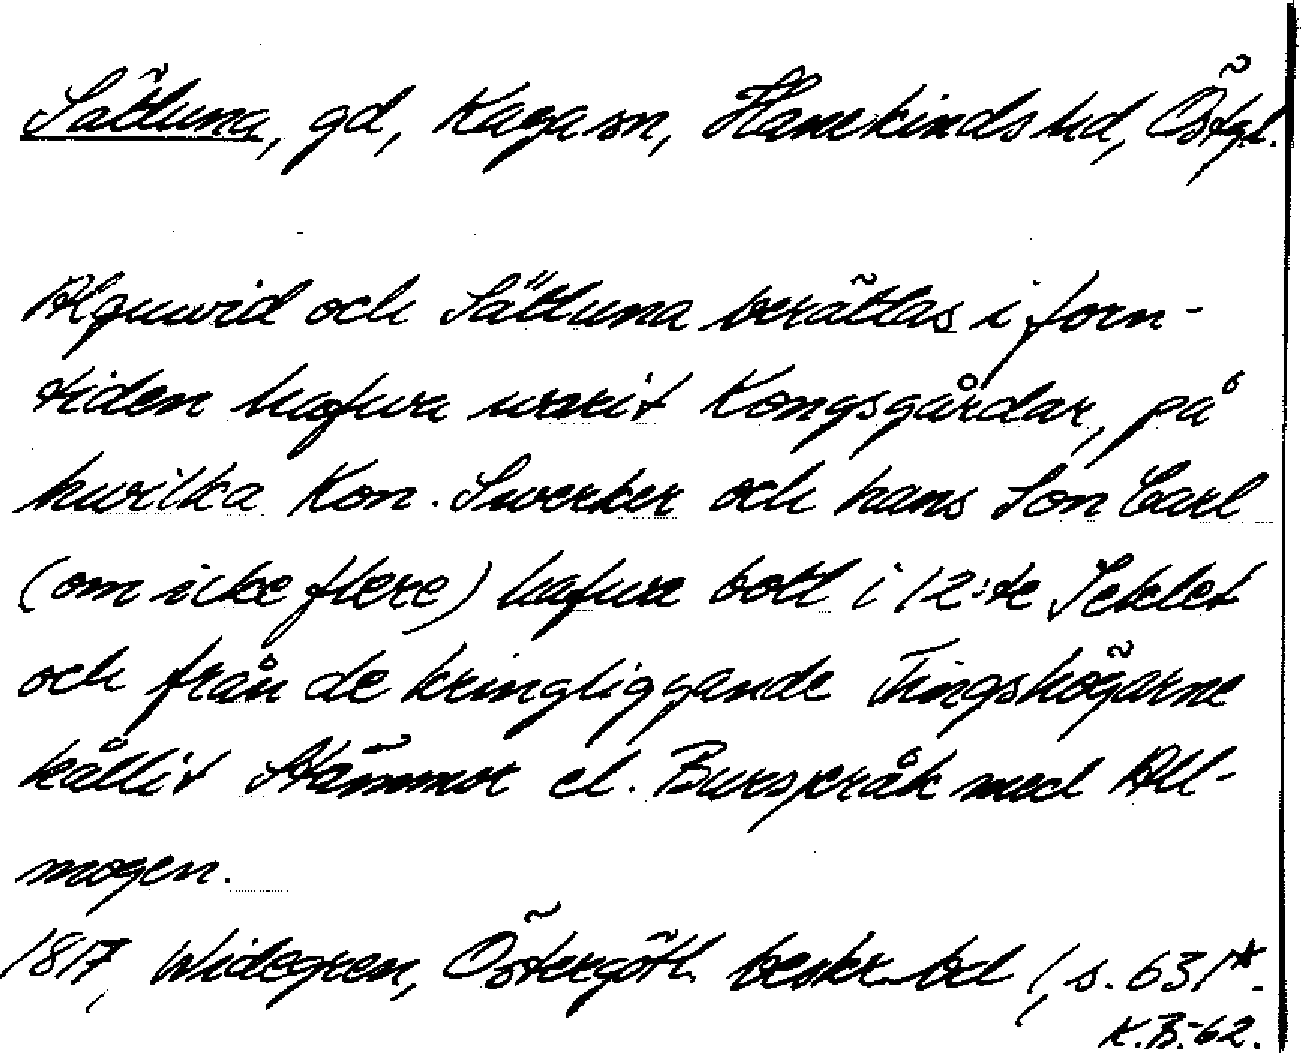 Sätuna, gd, Kaga sn, Hanekinds hd, Östgl.
Alguvid och Sätuna berättas i forn-
tiden hafva varit Kongsgårdar, på
hvilka Kon. Sverker och hans Son Carl
(om icke flere) hafva bott i 12:te Seklet
och från de kringliggande Tingshögarne
hållit Stämmor el. Burspråk med All-
mogen.
1817, Widegren, Östergötl. beskr. bd 1, s. 631*.
K.B. -62.